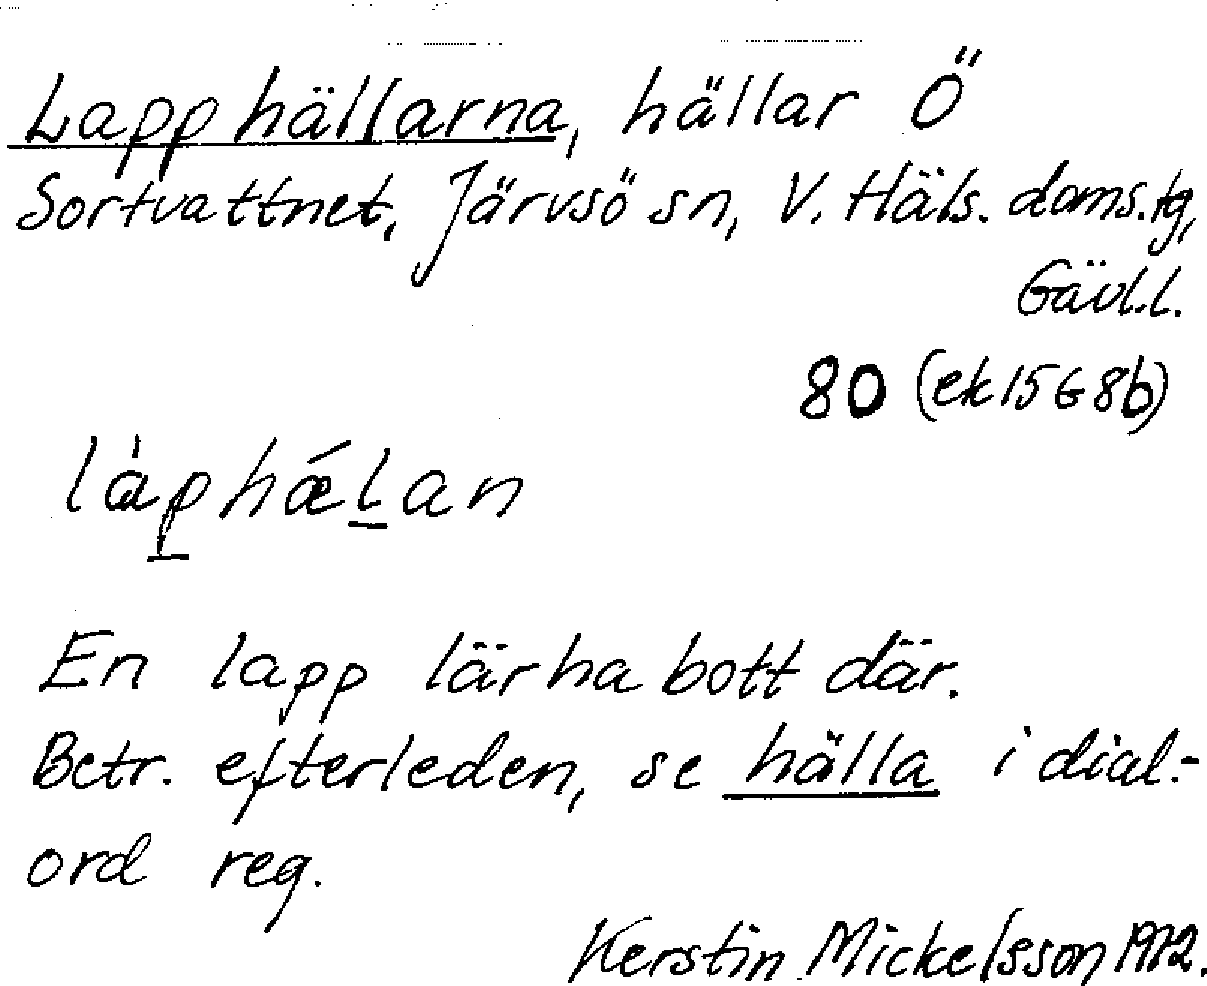 Lapphällarna, hällar Ö
Sortvattnet, Järvsö sn, V. Häls. doms.tg,
Gävl.l.
80 (ek 15 G 8b)
làp̲hǽl̲an
En lapp lär ha bott där.
Betr. efterleden, se hälla i dial.-
ord reg.
Kerstin Mickelsson 1972.